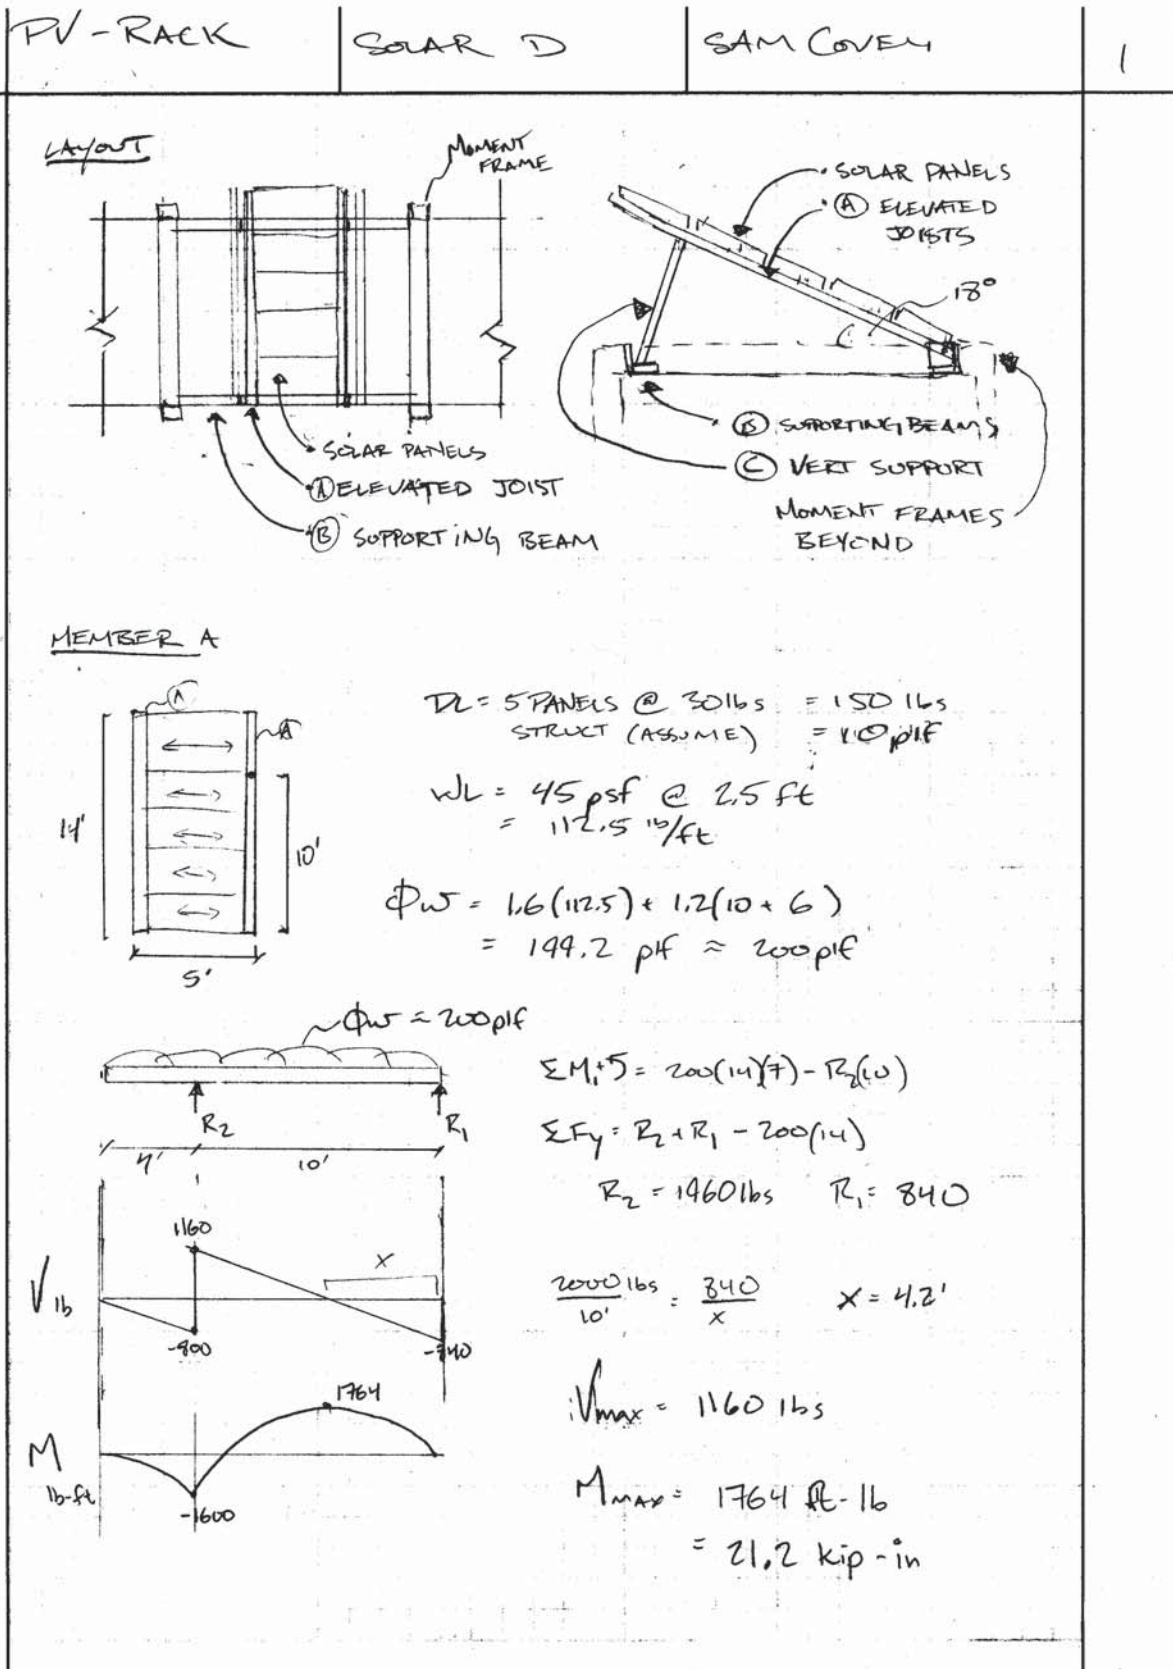 PV-RACK
SOLAR D
SAM COVELL
1
LAYOUT
MOMENT
FRAME
SOLAR PANELS
Ⓐ ELEVATED JOIST
Ⓑ SUPPORTING BEAM
SOLAR PANELS
Ⓐ ELEVATED
JOISTS
18°
Ⓑ SUPPORTING BEAMS
Ⓒ VERT SUPPORT
MOMENT FRAMES
BEYOND
MEMBER A
Ⓐ
A
14'
10'
5'
DL = 5 PANELS @ 30 lbs = 150 lbs
STRUCT (ASSUME) = 10 plf
WL = 45 psf @ 2.5 ft
= 112.5 lb/ft
ϕw = 1.6(112.5) + 1.2(10 + 6)
= 199.2 plf ≈ 200 plf
ϕw = 200 plf
R₂
R₁
4'
10'
ΣM₁+↺ = 200(14)(7) - R₂(10)
ΣFy = R₂ + R₁ - 200(14)
R₂ = 1960 lbs R₁ = 840
V lb
1160
x
-800
-840
2000 lbs / 10' = 840 / x x = 4.2'
Vmax = 1160 lbs
M
lb-ft
1764
-1600
MMAX = 1764 ft-lb
= 21.2 kip-in